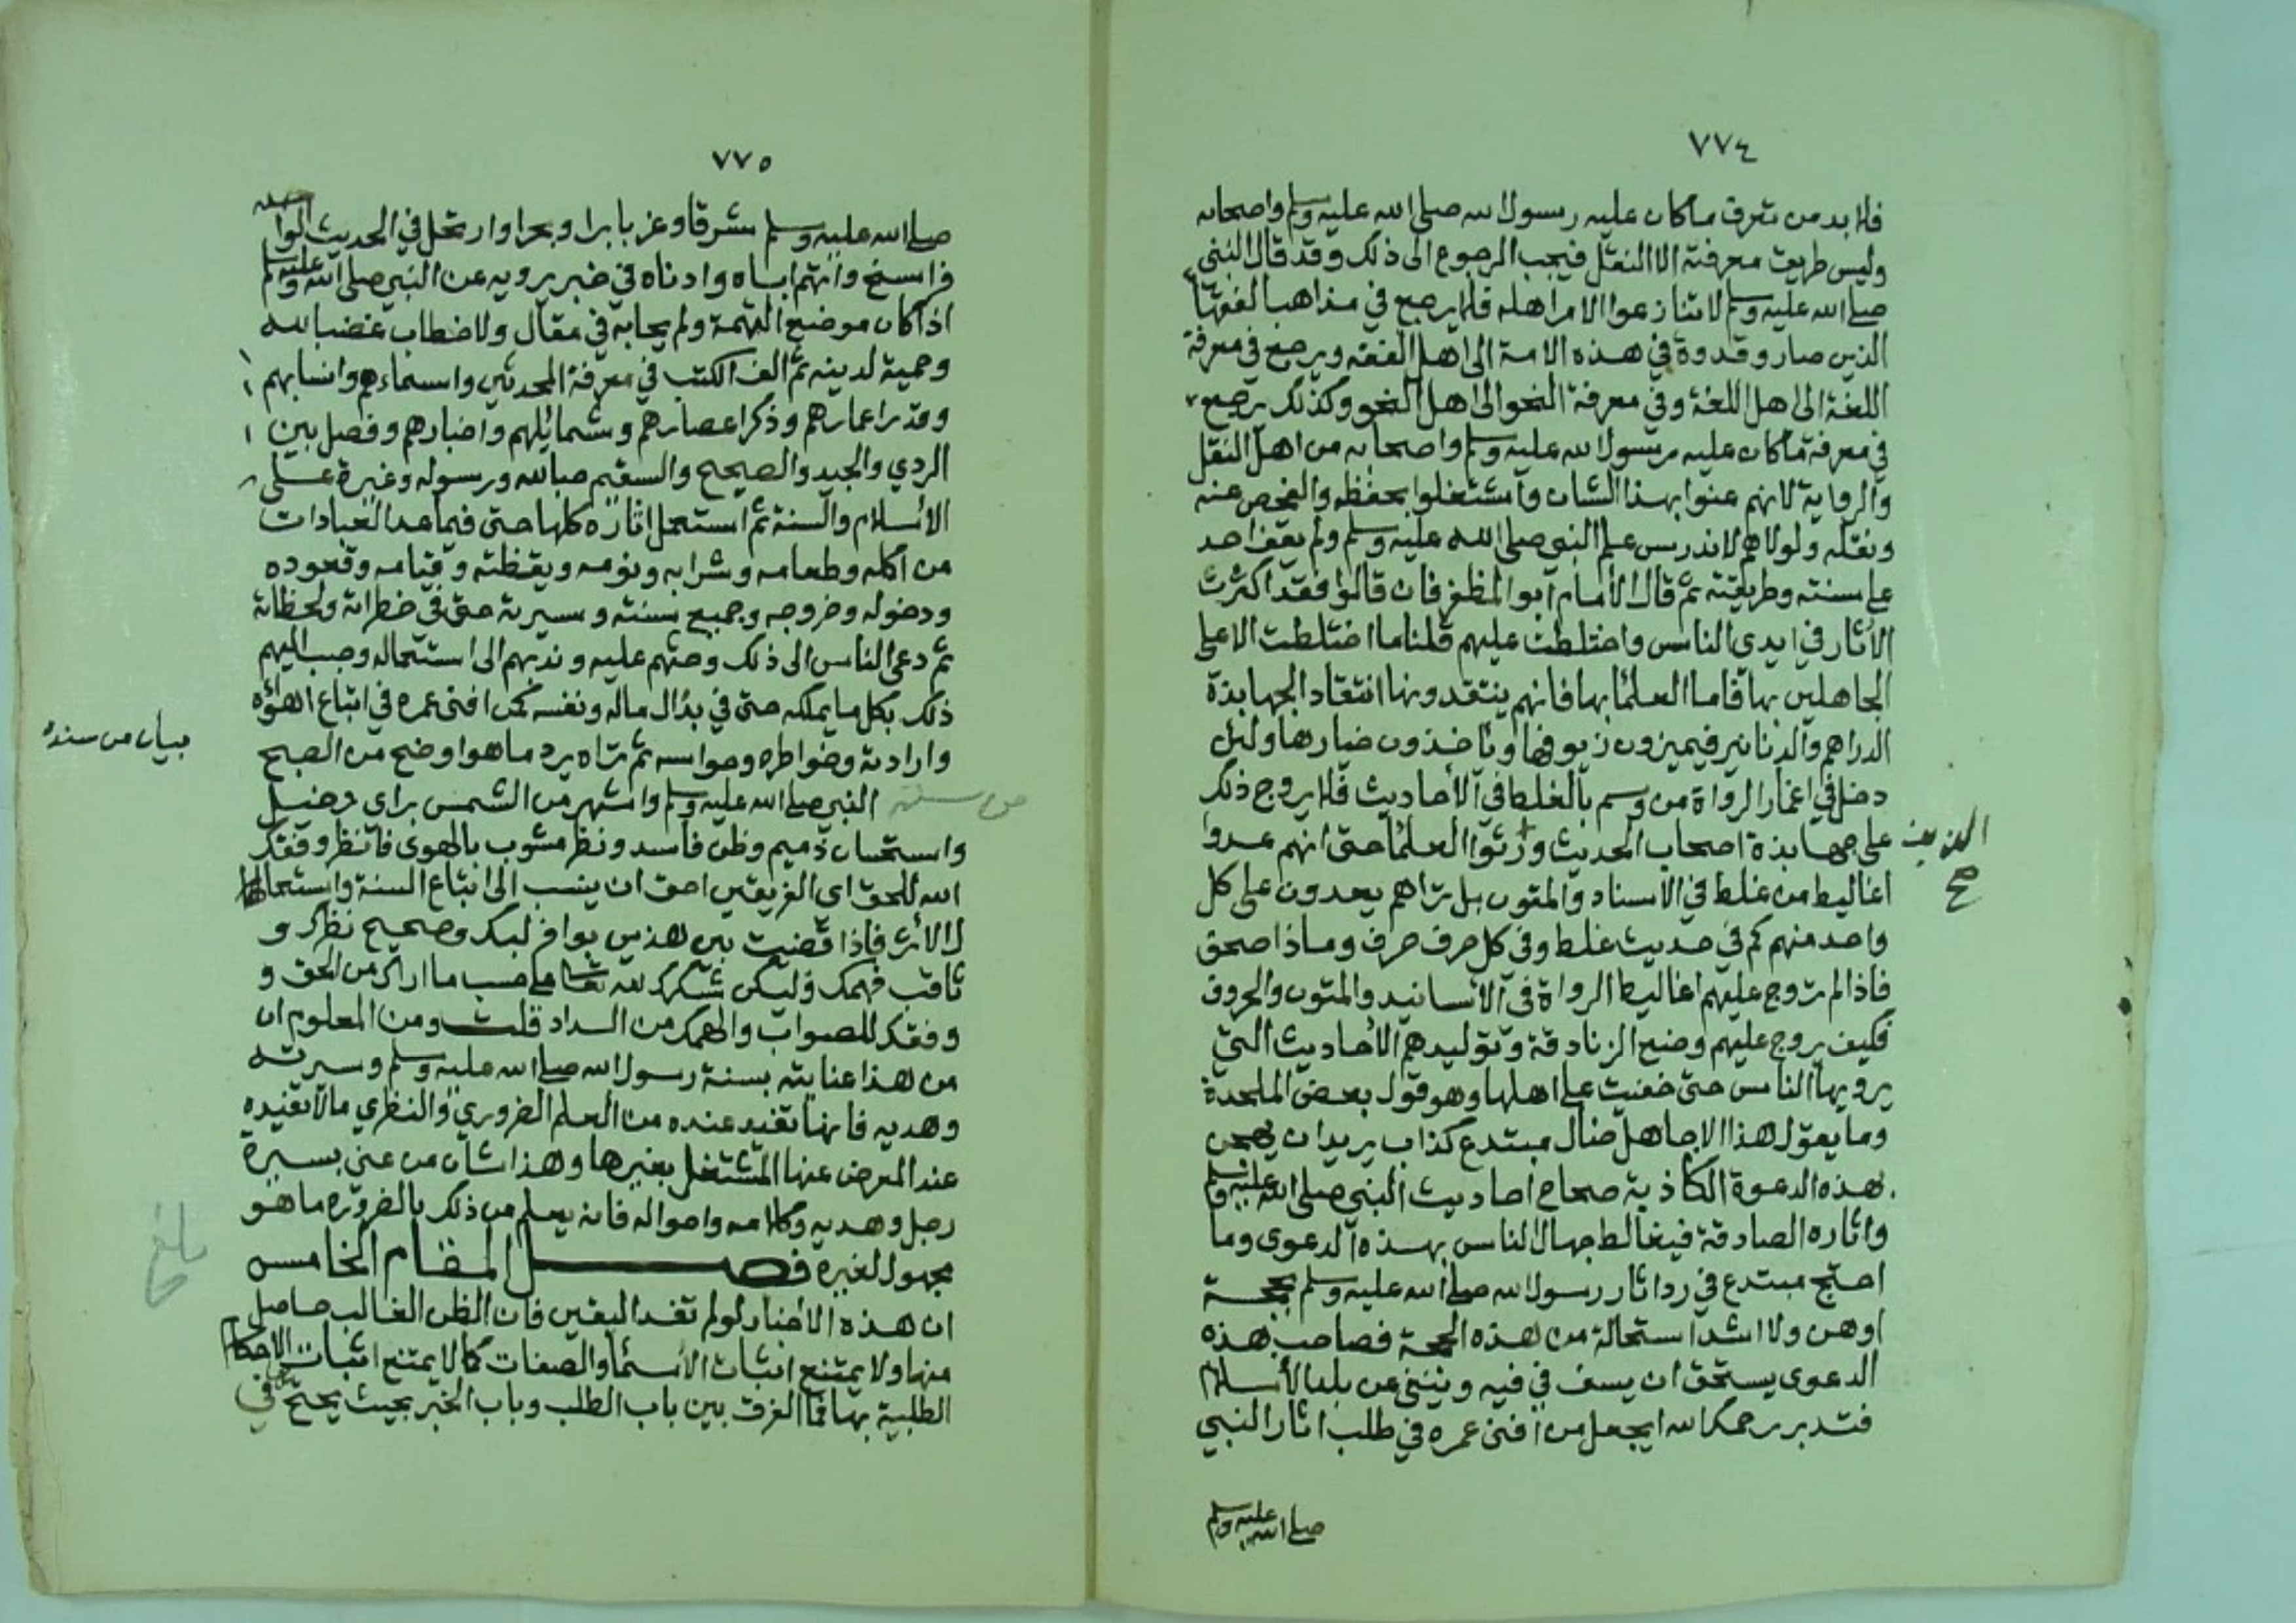 ٧٧٤
فلا بد من تعرف ما كان عليه رسول الله صلى الله عليه وسلم واصحابه
وليس طريق معرفته الا النقل فيجب الرجوع الى ذلك وقد قال النبي
صلى الله عليه وسلم لا تنازعوا الامر اهله فكما يرجع في مذاهب الفقها
الذين صاروا قدوة في هذه الامة الى اهل الفقه ويرجع في معرفة
اللغة الى اهل اللغة وفي معرفة النحو الى اهل النحو وكذلك يرجع
في معرفة ما كان عليه رسول الله عليه وسلم واصحابه من اهل النقل
والرواية لانهم عنوا بهذا الشان واشتغلوا بحفظه والفحص عنه
ونقله ولولاهم لاندرس علم النبي صلى الله عليه وسلم ولم يقف احد
على سنته وطريقته ثم قال الأمام ابو المظفر فان قالوا فقد اكثرت
الأثار في ايدي الناس واختلطت عليهم قلنا ما اختلطت الا على
الجاهلين بها فاما العلما بها فانهم ينتقدونها انتقاد الجهابذة
الدراهم والدنانير فيميزون زيوفها وياخذون خيارها ولئن
دخل في اغمار الرواة من وسم بالغلط في الأحاديث فلا يروج ذلك
على جهابذة اصحاب الحديث ورتوا العلما حتى انهم عدوا
اغاليط من غلط في الاسناد والمتون بل تراهم يعدون على كل
واحد منهم كم في حديث غلط وفي كل حرف حرف وماذا صحف
فاذا لم تروج عليهم اغاليط الرواة في الأسانيد والمتون والحروف
فكيف يروج عليهم وضع الزنادقة وتوليدهم الأحاديث التي
يرويها الناس حتى خفيت على اهلها وهو قول بعض الملحدة
وما يقول هذا الا جاهل ضال مبتدع كذاب يريد ان يهجن
بهذه الدعوة الكاذبة صحاح احاديث النبي صلى الله عليه وسلم
واثاره الصادقة فيغالط جهال الناس بهذه الدعوى وما
احتج مبتدع في رد اثار رسول الله صلى الله عليه وسلم بحجة
اوهن ولا اشد استحالة من هذه الحجة فصاحب هذه
الدعوى يستحق ان يسف في فيه وينفى عن بلد الأسلام
فتدبر رحمك الله ايجعل من افنى عمره في طلب اثار النبي
صلى الله عليه وسلم
٧٧٥
صلى الله عليه وسلم شرقا وغربا برا وبحرا وارتحل في الحديث الواحد
فراسخ واتهم اباه وادناه في خبر يرويه عن النبي صلى الله عليه وسلم
اذا كان موضع التهمة ولم يحابه في مقال ولا خطاب غضبا لله
وحمية لدينه ثم الف الكتب في معرفة المحدثين واسماءهم وانسابهم
وقدر اعمارهم وذكر اعصارهم وشمائلهم واخبارهم وفصل بين
الردي والجيد والصحيح والسقيم حبا لله ورسوله وغيرة على
الأسلام والسنة ثم استعمل اثاره كلها حتى فيما عدا العبادات
من اكله وطعامه وشرابه ونومه ويقظته وقيامه وقعوده
ودخوله وخروجه وجميع سنته وسيرته حتى في خطراته ولحظاته
ثم دعى الناس الى ذلك وحثهم عليه وندبهم الى استعماله وحبب اليهم
ذلك بكل ما يملكه حتى في بذل ماله ونفسه كمن افنى عمره في اتباع اهوائه
وارادته وخواطره وهواسه ثم تراه يرد ما هو اوضح من الصبح
من سنة النبي صلى الله عليه وسلم واشهر من الشمس براي دخيل
واستحسان ذميم وظن فاسد ونظر مشوب بالهوى فانظر وفقك
الله للحق اي الفريقين احق ان ينسب الى اتباع السنة واستعمال
الأثر فاذا قضيت بين هذين بوافر لبك وصحيح نظرك و
ثاقب فهمك فليكن شكرك لله تعالى على حسب ما اراك من الحق و
وفقك للصواب والهمك من السداد قلت ومن المعلوم ان
من هذا عنايته بسنة رسول الله صلى الله عليه وسلم وسيرته
وهديه فانها تفيد عنده من العلم الضروري والنظري ما لا تفيده
عند المعرض عنها المشتغل بغيرها وهذا شان من عني بسيرة
رجل وهديه وكلامه واحواله فانه يعلم من ذلك بالضرورة ما هو
مجهول لغيره فصل المقام الخامس
ان هذه الاخبار لو لم تفد اليقين فان الظن الغالب حاصل
منها ولا يمتنع اثبات الأسما والصفات كما لا يمتنع اثبات الاحكام
الطلبية بها فما الفرق بين باب الطلب وباب الخبر بحيث يحتج في
بيان من سنده
بلغ